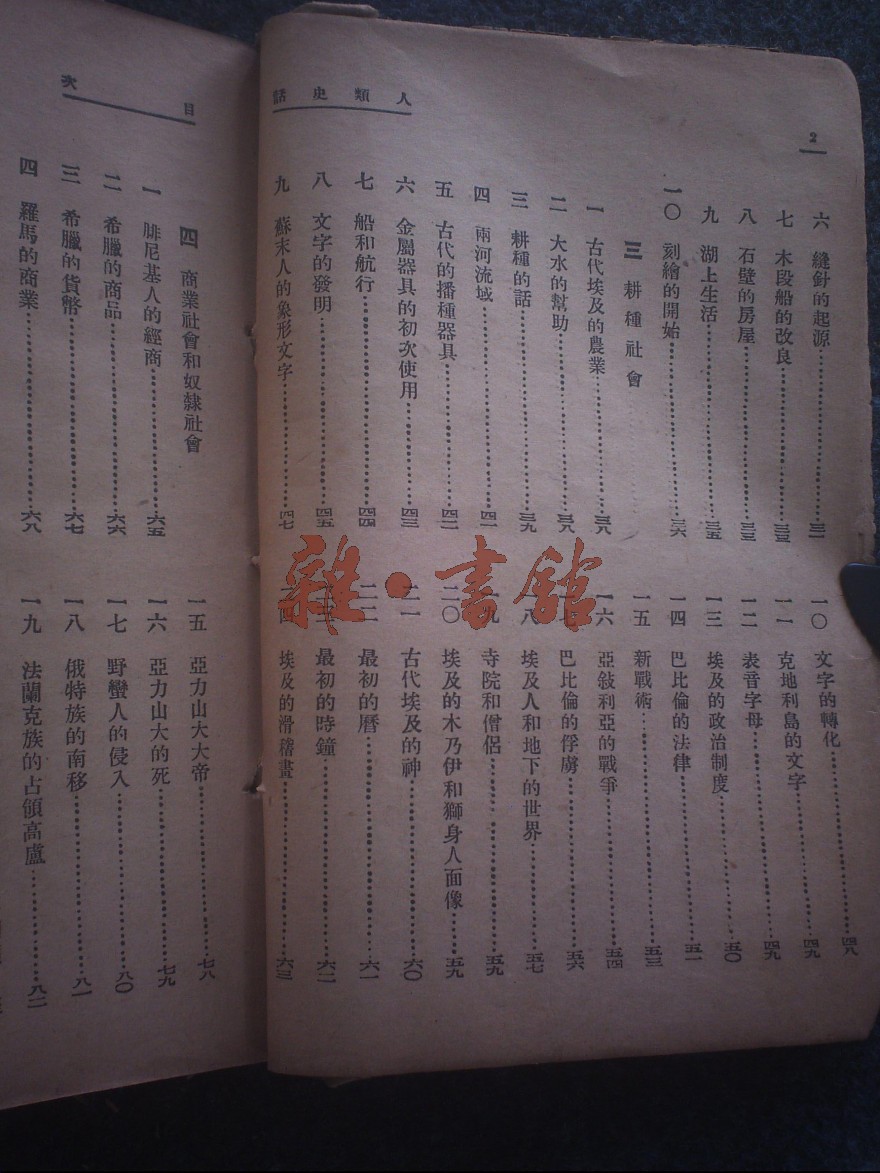 2
人類史話
六 縫針的起源……三二
七 木段船的改良……三三
八 石壁的房屋……三三
九 湖上生活……三五
一〇 刻繪的開始……三六
三 耕種社會
一 古代埃及的農業……三八
二 大水的幫助……三八
三 耕種的話……三九
四 兩河流域……四一
五 古代的播種器具……四二
六 金屬器具的初次使用……四三
七 船和航行……四四
八 文字的發明……四五
九 蘇末人的象形文字……四七
一〇 文字的轉化……四八
一一 克地利島的文字……四九
一二 表音字母……四九
一三 埃及的政治制度……五〇
一四 巴比倫的法律……五一
一五 新戰術……五三
一六 亞敍利亞的戰爭……五四
一七 巴比倫的俘虜……五六
一八 埃及人和地下的世界……五七
一九 寺院和僧侶……五九
二〇 埃及的木乃伊和獅身人面像……五九
二一 古代埃及的神……六〇
二二 最初的曆……六一
二三 最初的時鐘……六二
二四 埃及的滑稽畫……六三
雜·書館
目次
四 商業社會和奴隸社會
一 腓尼基人的經商……六五
二 希臘的商品……六六
三 希臘的貨幣……六七
四 羅馬的商業……六八
一五 亞力山大大帝……七八
一六 亞力山大的死……七九
一七 野蠻人的侵入……八〇
一八 俄特族的南移……八一
一九 法蘭克族的占領高盧……八二